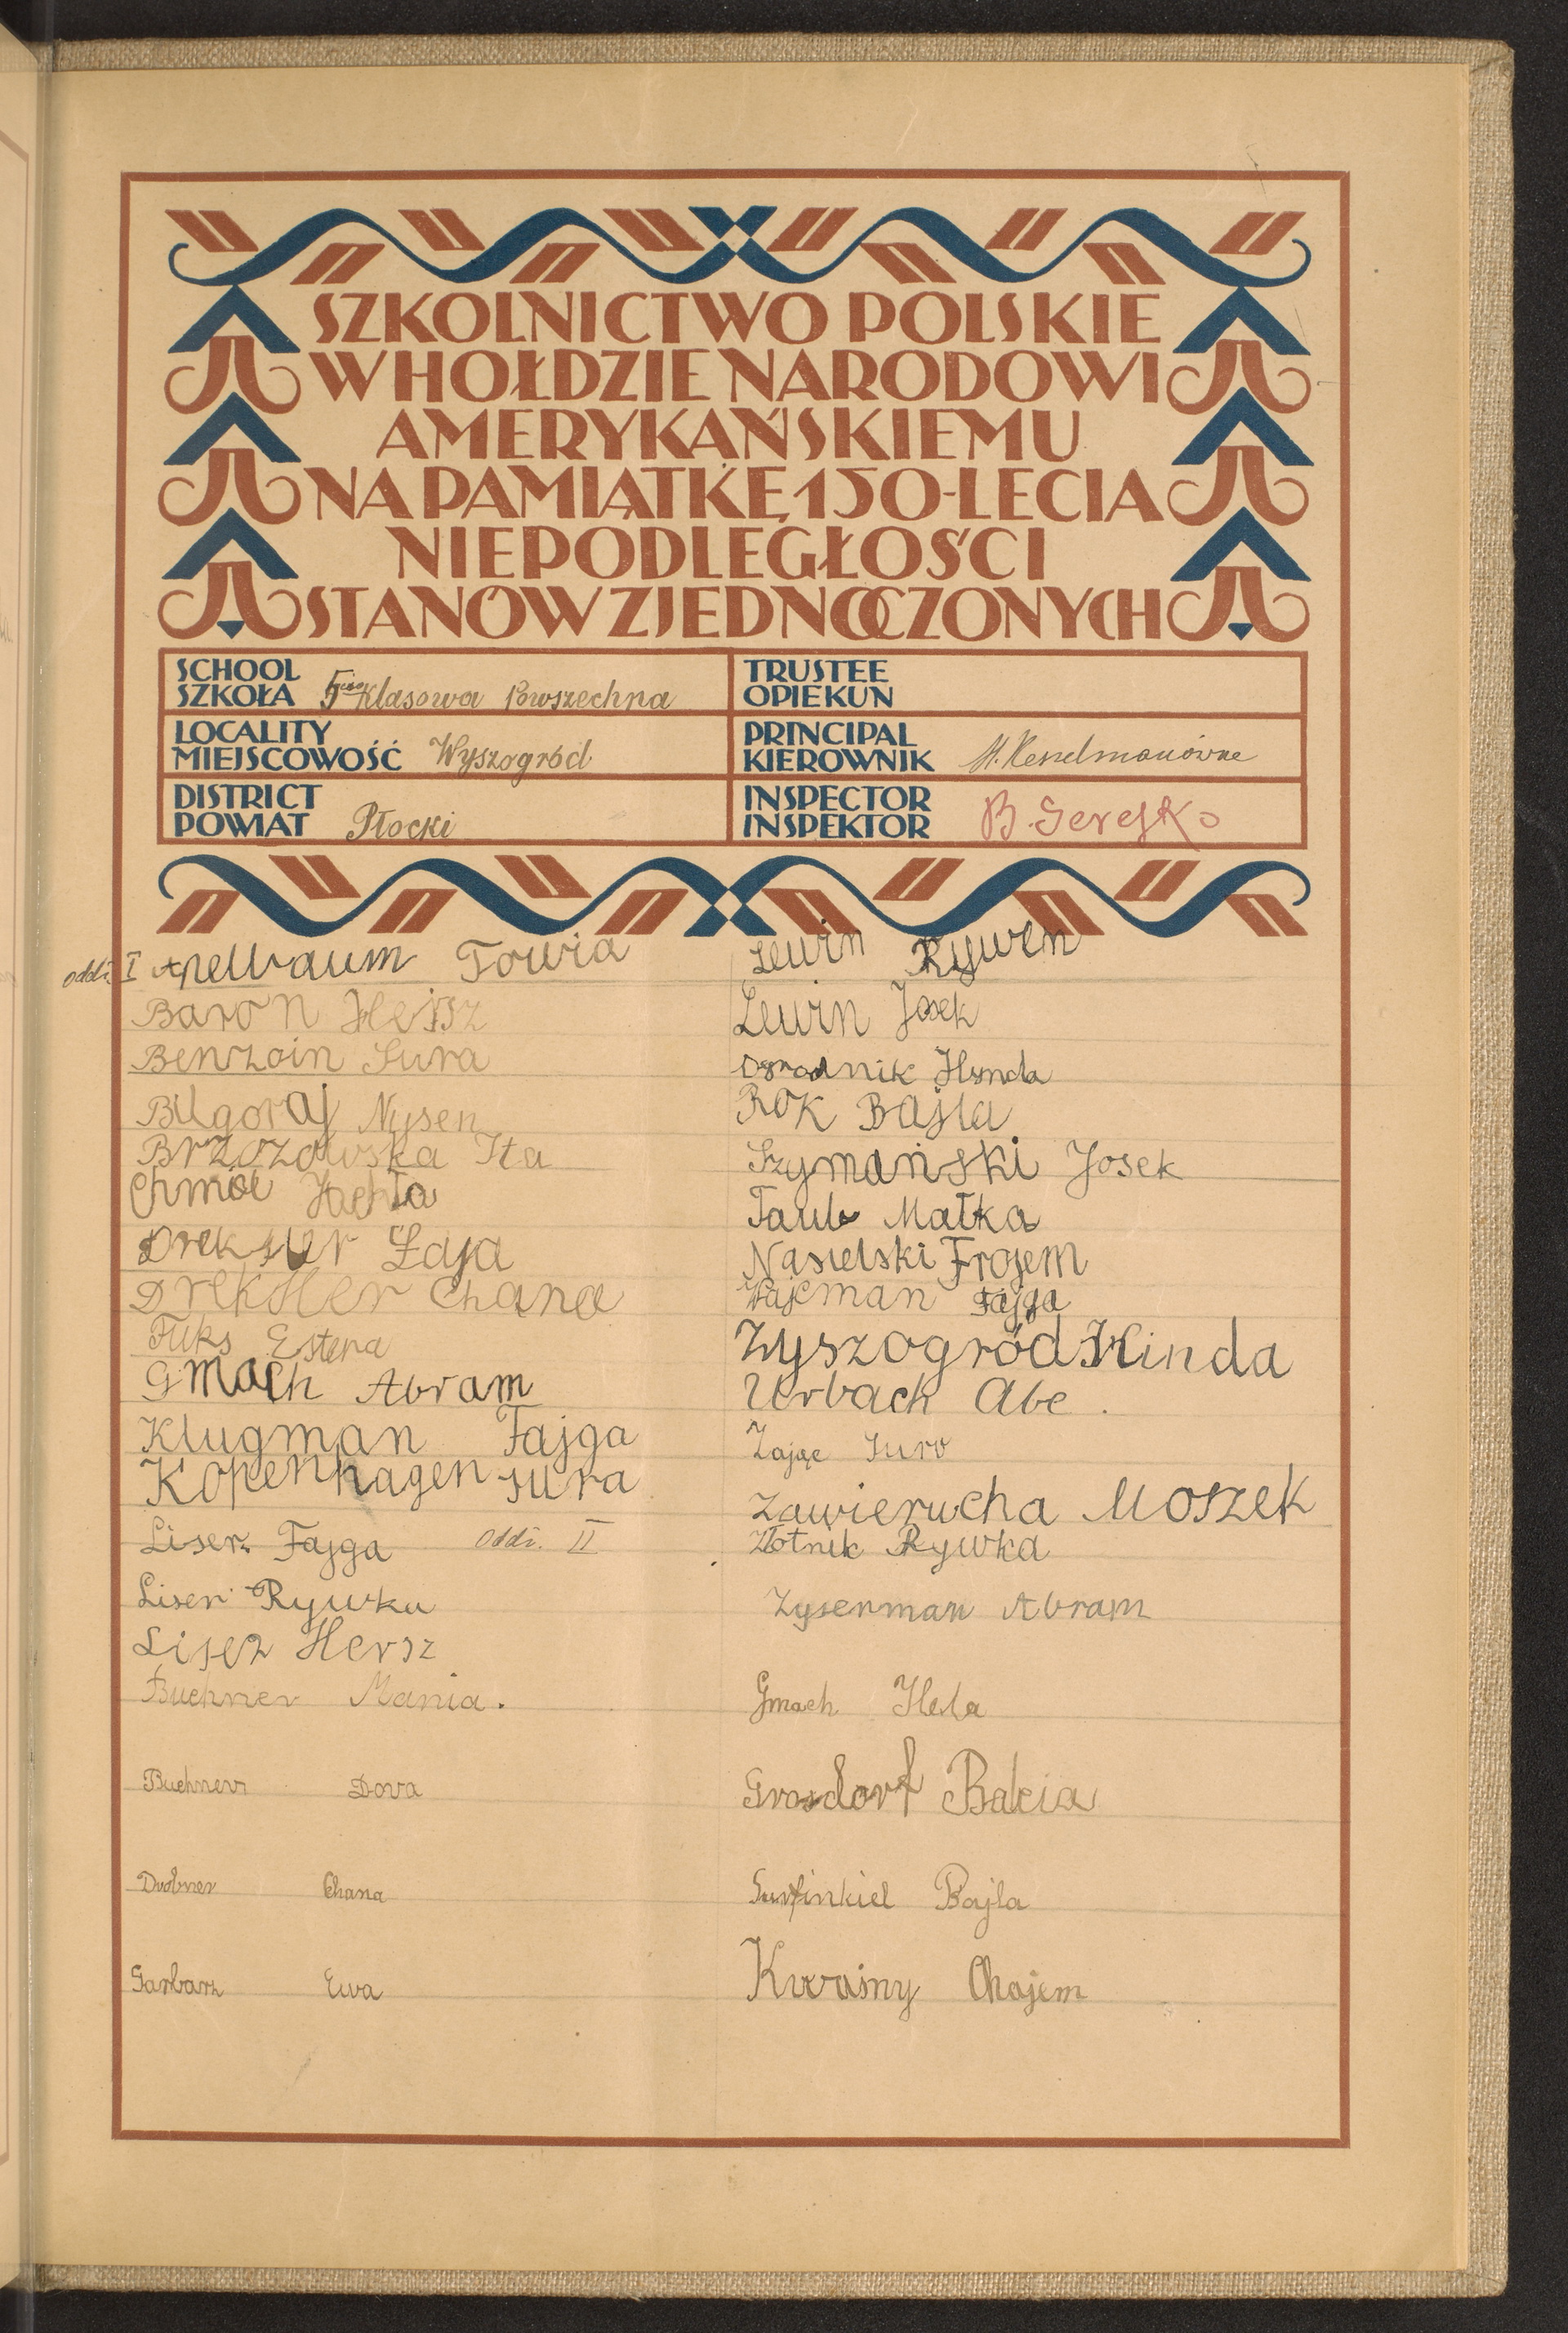 SZKOLNICTWO POLSKIE
W HOŁDZIE NARODOWI
AMERYKAŃSKIEMU
NA PAMIĄTKĘ 150-LECIA
NIEPODLEGŁOŚCI
STANÓW ZJEDNOCZONYCH
SCHOOL
SZKOŁA 5cio Klasowa Powszechna
TRUSTEE
OPIEKUN
LOCALITY
MIEJSCOWOŚĆ Wyszogród
PRINCIPAL
KIEROWNIK
DISTRICT
POWIAT Płocki
INSPECTOR
INSPEKTOR B. Gerejko
oddz. I Apelbaum Towia
Baron Hersz
Benzoin Sura
Bilgoraj Nysen
Brzozowska Ita
Chmöl
Dreksler Łaja
Dreksler Chana
Fuks Estera
Gmach Abram
Klugman Fajga
Kopenhagen Sura
Liser Fajga oddz. II
Liser Rywka
Liser Hersz
Buchner Mania.
Buchner Dora
Drobner Chana
Garbarz Ewa
Lewin Rywen
Lewin Josek
Ogrodnik Hynda
Rok Bajla
Szymański Josek
Taub Małka
Nasielski Frojem
Wajcman Fajga
Wyszogród Hinda
Urbach Abe.
Zając Sura
Zawierucha Moszek
Złotnik Rywka
Zyserman Abram
Gmach Hela
Grosdorf Balcia
Gurfinkiel Bajla
Kwaśny Chajem